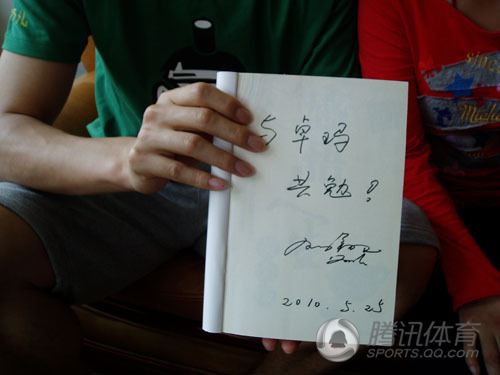 与卓玛
共勉!
2010.5.25
腾讯体育
SPORTS.QQ.COM